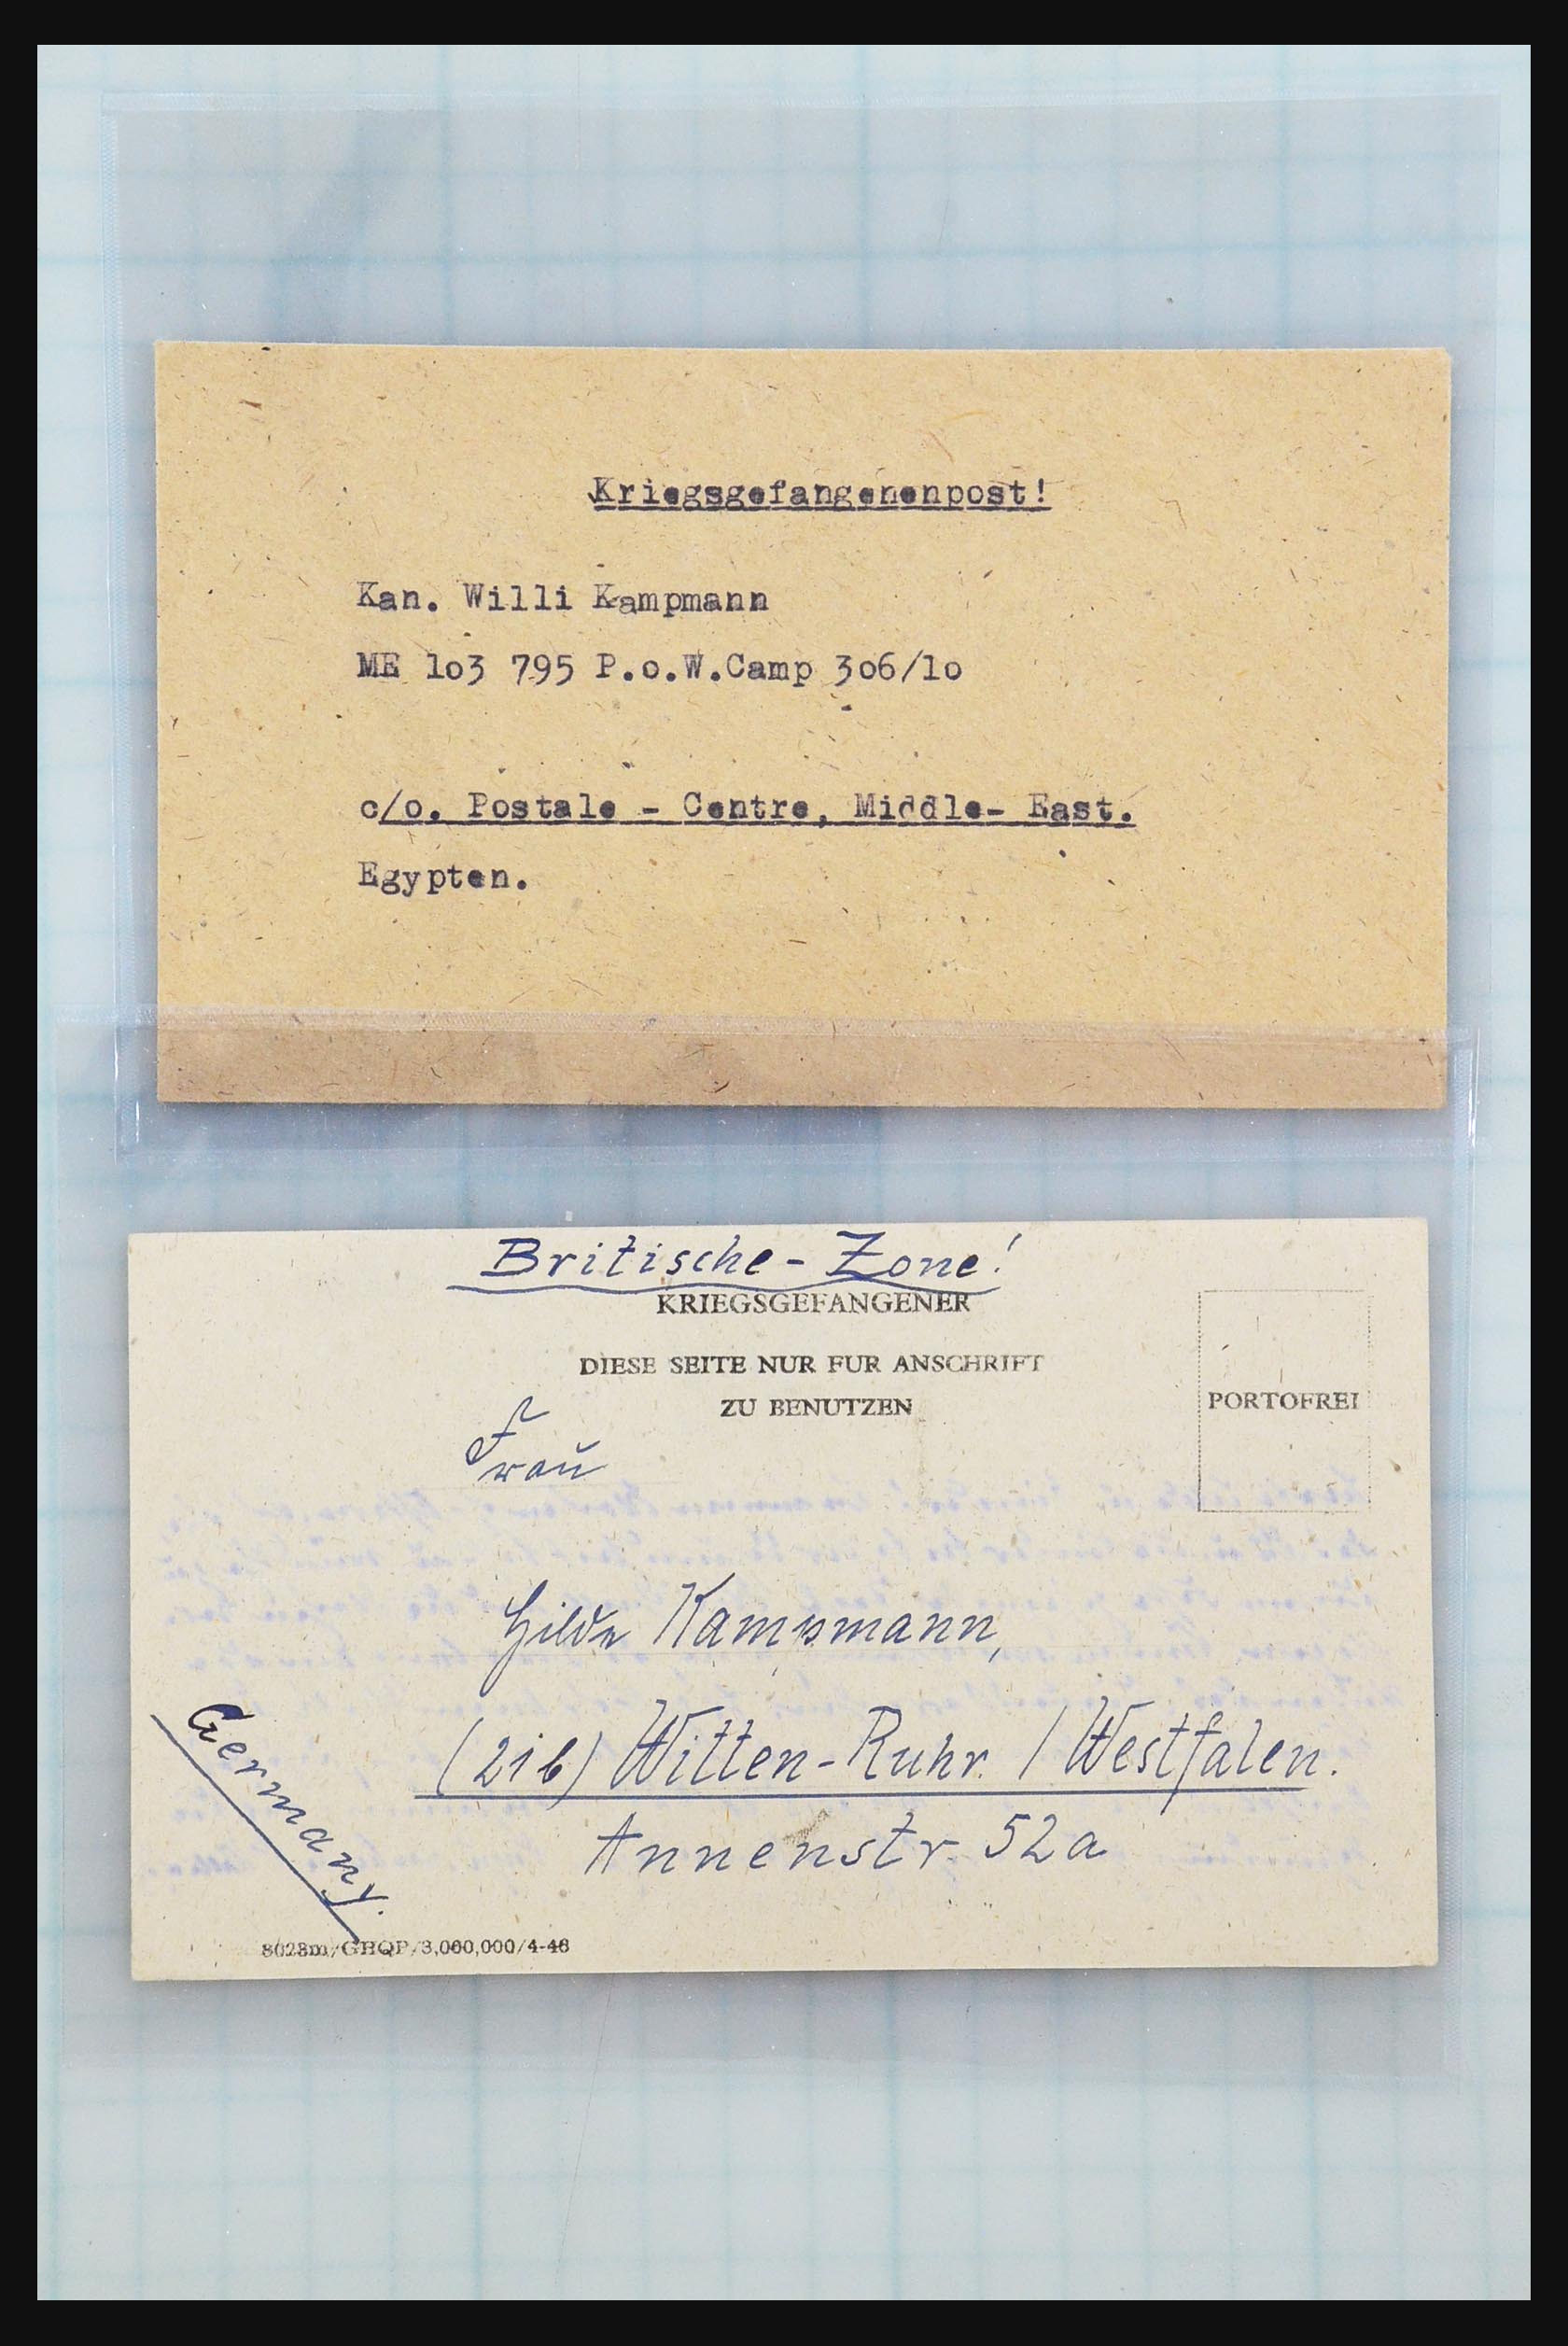 Kriegsgefangenenpost!
Kan. Willi Kampmann
ME lo3 795 P.o.W.Camp 3o6/lo
c/o. Postale - Centre, Middle- East.
Egypten.
Britische - Zone!
KRIEGSGEFANGENER
DIESE SEITE NUR FUR ANSCHRIFT
ZU BENUTZEN
PORTOFREI
Frau
Hilde Kampmann,
(21b) Witten-Ruhr. / Westfalen.
Annenstr. 52a
Germany.
8028m/GHQP/3,000,000/4-46